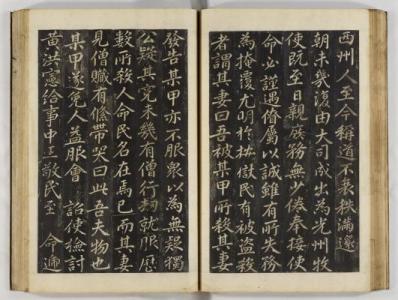 西州人至今稱道不衰秩滿還
朝未幾復由大司成出為光州牧
使既至日親庶務無少倦奉接使
命必謹遇僚屬以誠雖有所失務
為掩覆尤明於按獄民有被盗殺
者謂其妻曰吾被某甲所殺其妻
發告某甲亦不服衆以為無疑獨
公疑其寃未幾有僧行刼就服歷
數所殺人命民名在焉已而其妻
見僧贓有絛帶哭曰此吾夫物也
某甲遂免人益服會 詔使檢討
黃洪憲給事中王敬民至 命